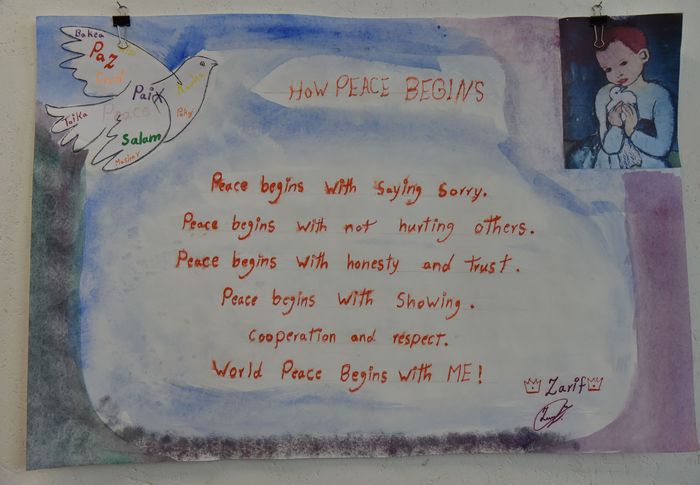 Bakea
Paz
Paix
Peace
Taika
Salam
HOW PEACE BEGINS
Peace begins with saying sorry.
Peace begins with not hurting others.
Peace begins with honesty and trust.
Peace begins with showing.
cooperation and respect.
World Peace Begins with ME!
Zarif